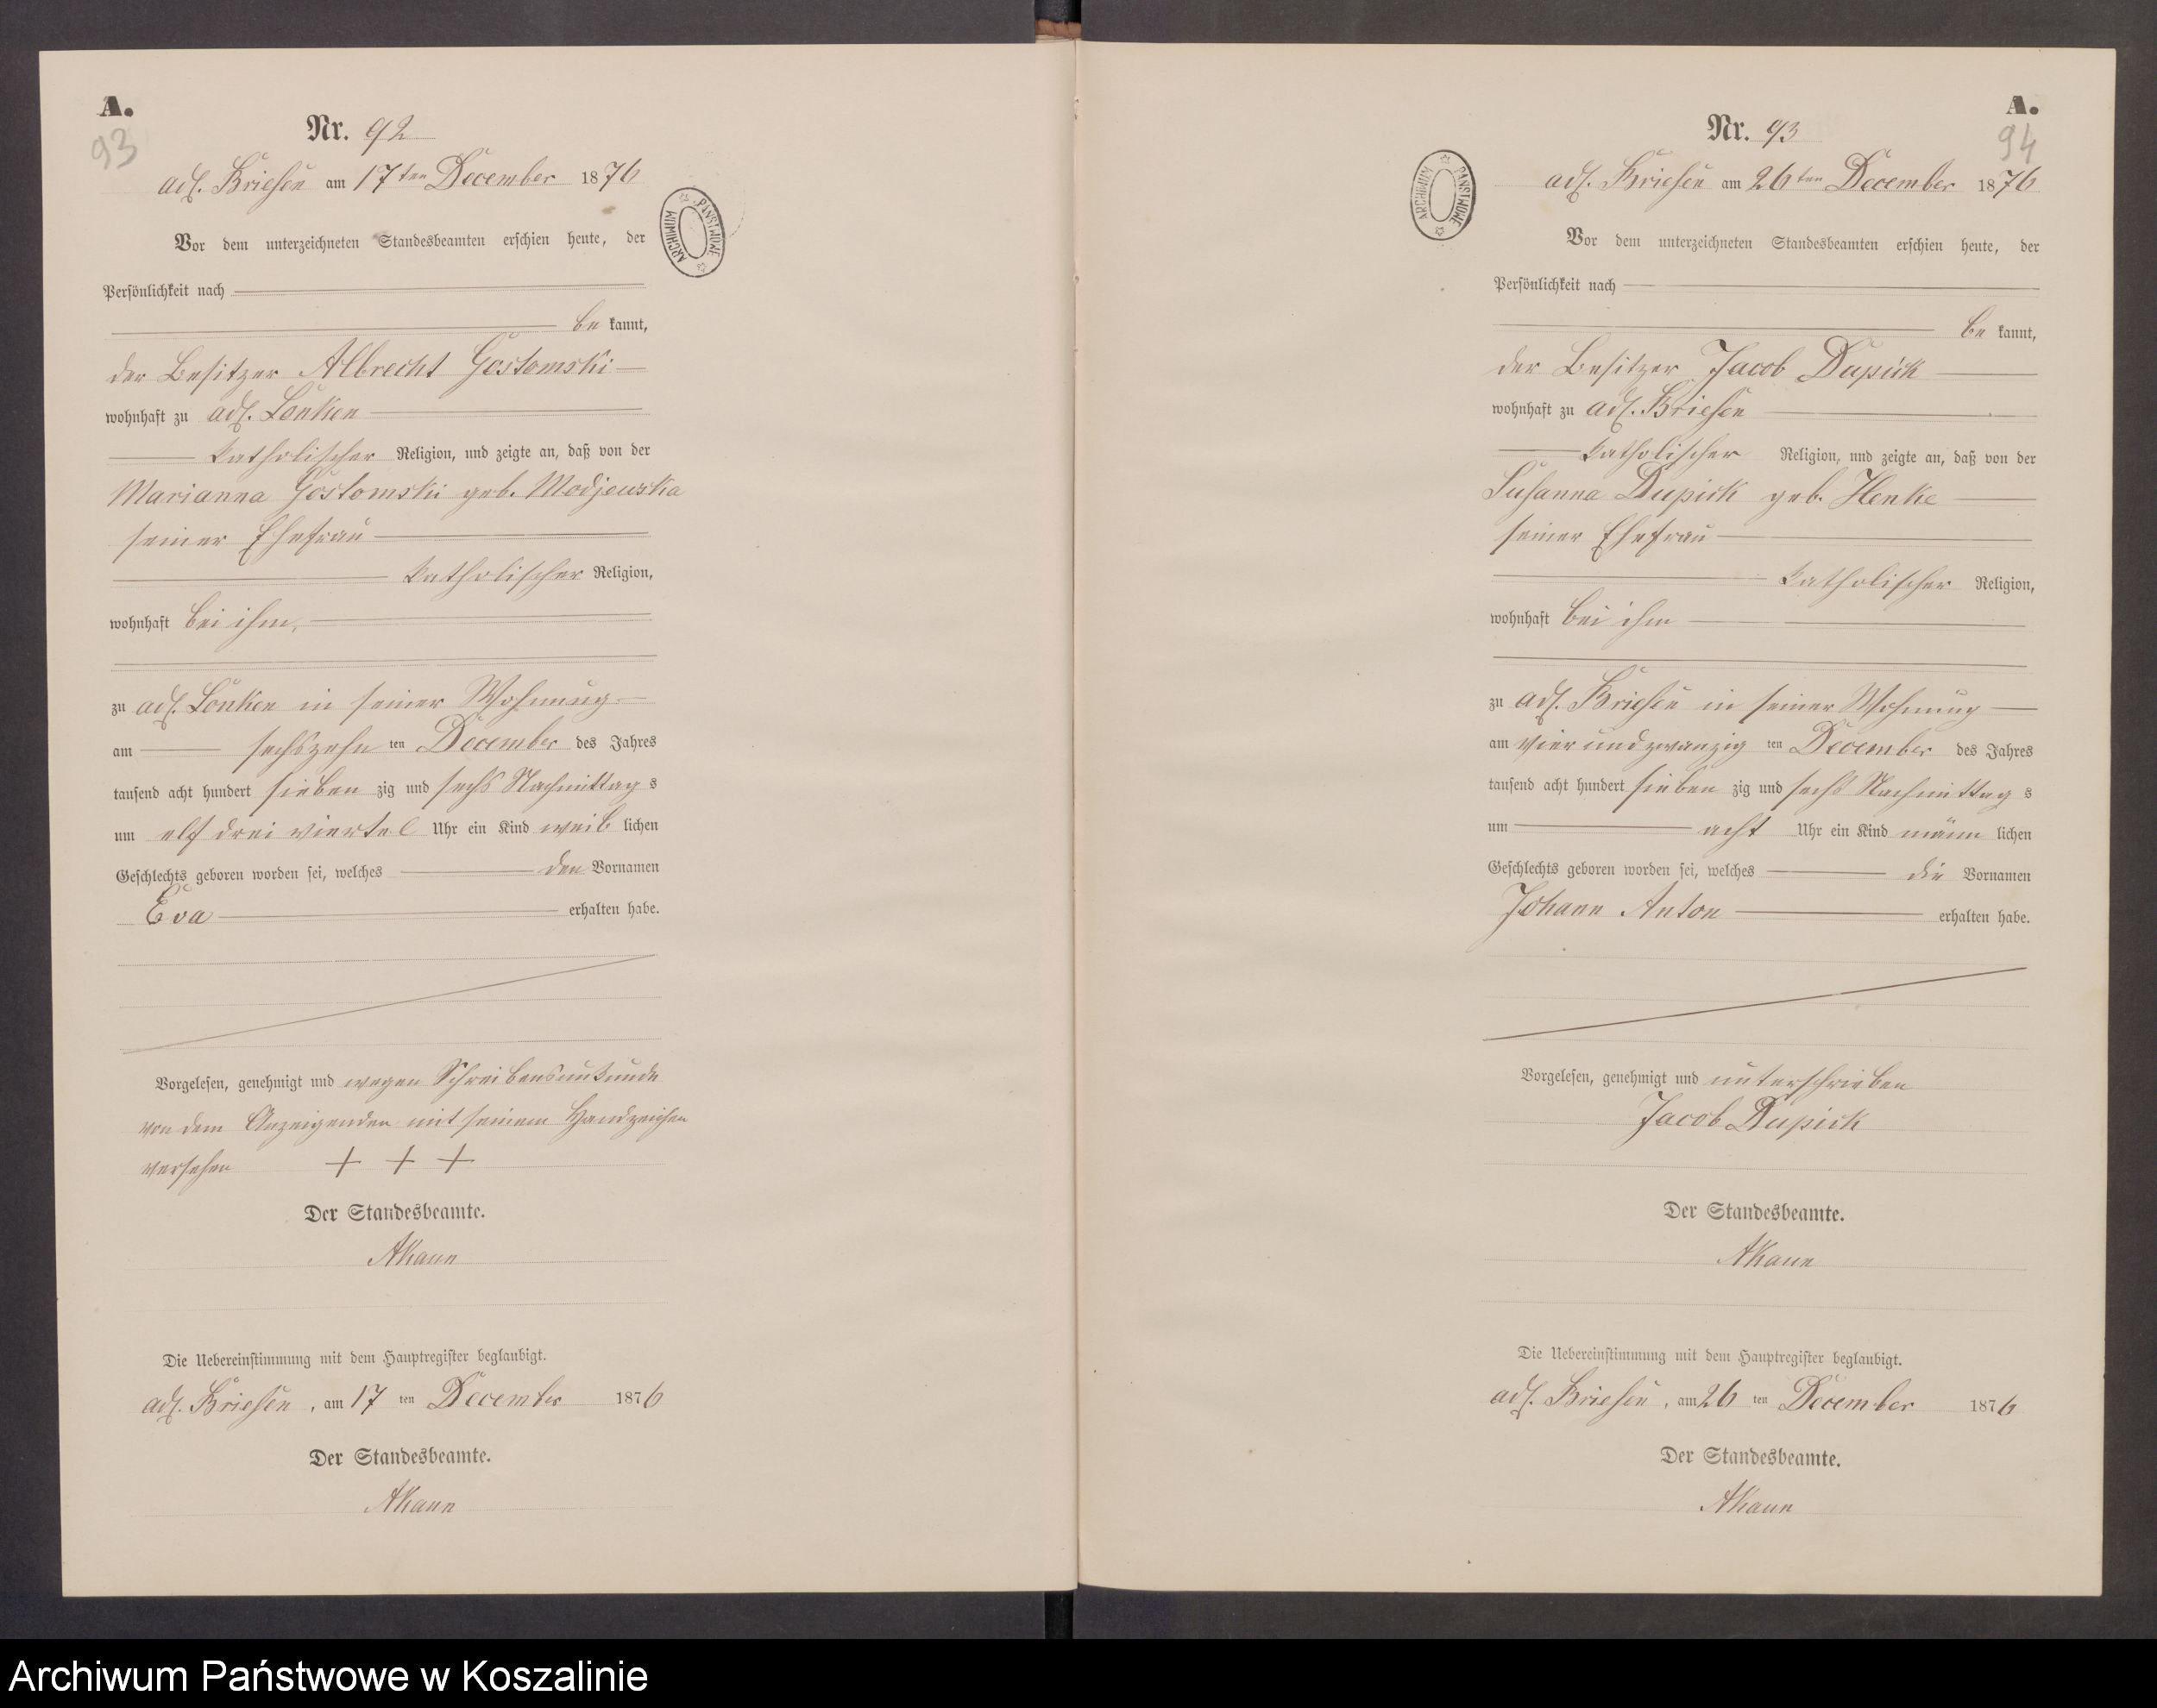 A.
93
Nr. 92
adl. Briesen am 17ten December 1876
Vor dem unterzeichneten Standesbeamten erschien heute, der
Persönlichkeit nach
be kannt,
der Besitzer Albrecht Gostomski
wohnhaft zu adl. Lonken
katholischer Religion, und zeigte an, daß von der
Marianna Gostomski geb. Modjewska
seiner Ehefrau
katholischer Religion,
wohnhaft bei ihm,
zu adl. Lonken in seiner Wohnung
am sechszehn ten December des Jahres
tausend acht hundert sieben zig und sechs Nachmittag s
um elf drei viertel Uhr ein Kind weib lichen
Geschlechts geboren worden sei, welches den Vornamen
Eva erhalten habe.
Vorgelesen, genehmigt und wegen Schreibensunkunde
von dem Anzeigenden mit seinem Handzeichen
versehen + + +
Der Standesbeamte.
AKaun
Die Uebereinstimmung mit dem Hauptregister beglaubigt.
adl. Briesen, am 17 ten December 1876
Der Standesbeamte.
AKaun
ARCHIWUM PAŃSTWOWE
A.
94
Nr. 93
adl. Briesen am 26ten December 1876
Vor dem unterzeichneten Standesbeamten erschien heute, der
Persönlichkeit nach
be kannt,
der Besitzer Jacob Dupick
wohnhaft zu adl. Briesen
katholischer Religion, und zeigte an, daß von der
Susanna Dupick geb. Henke
seiner Ehefrau
katholischer Religion,
wohnhaft bei ihm
zu adl. Briesen in seiner Wohnung
am vier und zwanzig ten December des Jahres
tausend acht hundert sieben zig und sechs Nachmittag s
um acht Uhr ein Kind männ lichen
Geschlechts geboren worden sei, welches die Vornamen
Johann Anton erhalten habe.
Vorgelesen, genehmigt und unterschrieben
Jacob Dupick
Der Standesbeamte.
AKaun
Die Uebereinstimmung mit dem Hauptregister beglaubigt.
adl. Briesen, am 26 ten December 1876
Der Standesbeamte.
AKaun
ARCHIWUM PAŃSTWOWE
Archiwum Państwowe w Koszalinie